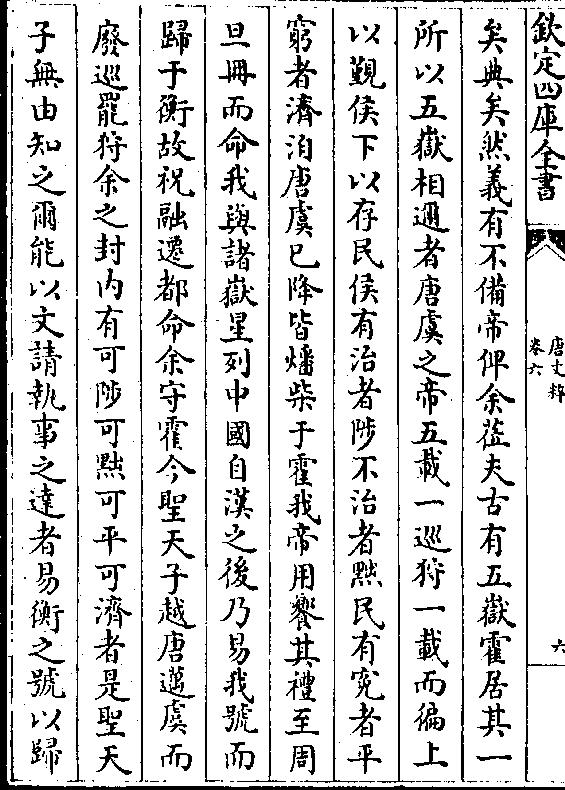 欽定四庫全書
唐文粹
卷六
六
矣典矣然義有不備帝俾余蒞夫古有五嶽霍居其一
所以五嶽相邇者唐虞之帝五載一巡狩一載而徧上
以覲侯下以存民侯有治者陟不治者黜民有寃者平
窮者濟洎唐虞已降皆燔柴于霍我帝用饗其禮至周
旦冊而命我與諸嶽星列中國自漢之後乃易我號而
歸于衡故祝融遷都命余守霍今聖天子越唐邁虞而
廢巡罷狩余之封内有可陟可黜可平可濟者是聖天
子無由知之爾能以文請執事之達者易衡之號以歸